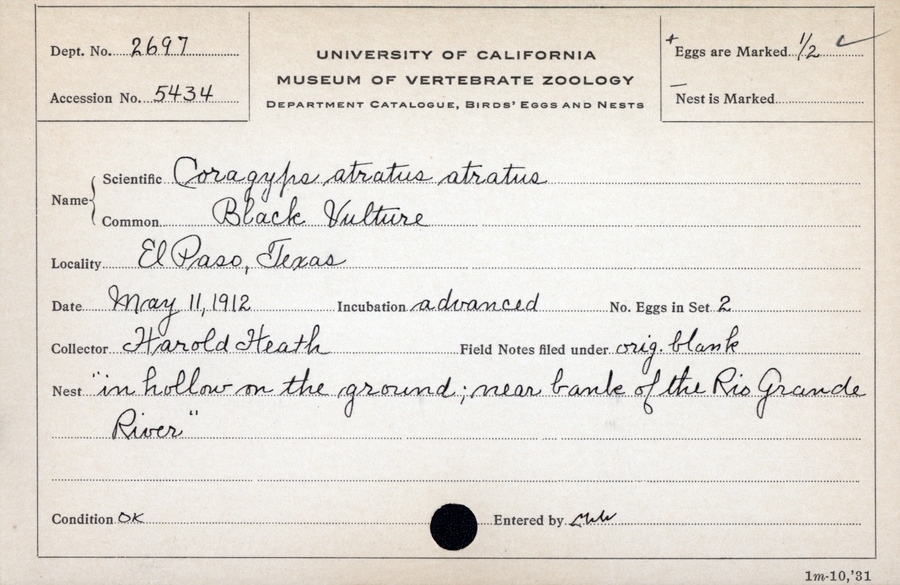 Dept. No. 2697
Accession No. 5434
UNIVERSITY OF CALIFORNIA
MUSEUM OF VERTEBRATE ZOOLOGY
DEPARTMENT CATALOGUE, BIRDS' EGGS AND NESTS
+ Eggs are Marked 1/2 ✓
— Nest is Marked
Name { Scientific Coragyps atratus atratus
Common Black Vulture
Locality El Paso, Texas
Date May 11, 1912 Incubation advanced No. Eggs in Set 2
Collector Harold Heath Field Notes filed under orig. blank
Nest "in hollow on the ground; near bank of the Rio Grande
River"
Condition OK Entered by
1m-10,'31